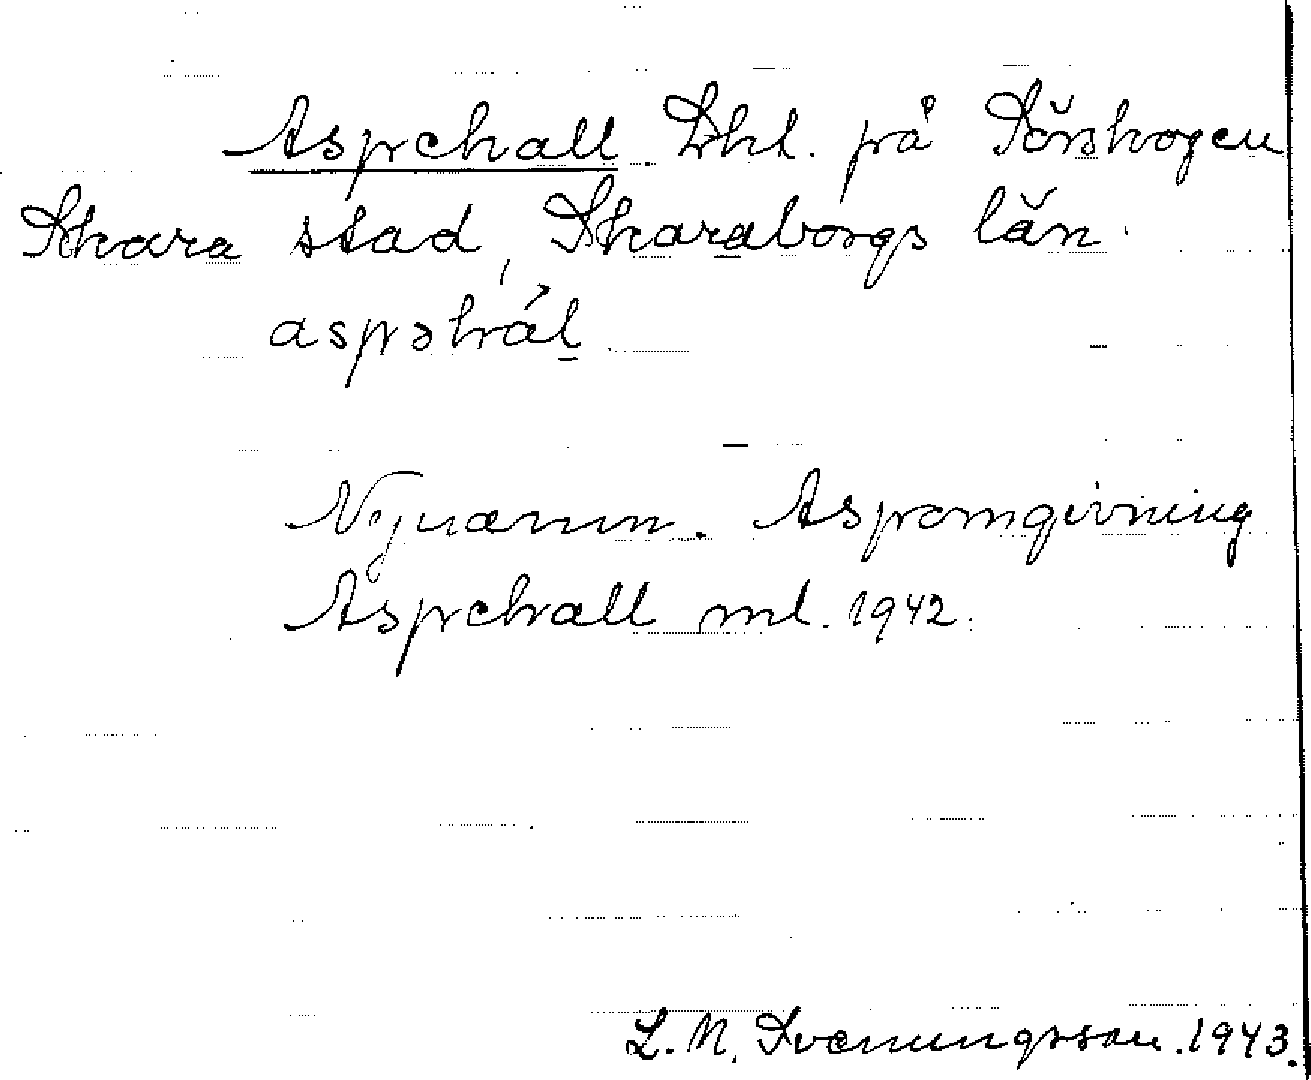 Aspehall Lht. på Sörskogen
Skara stad, Skaraborgs län.
aspəhál
Nynamn. Aspomgivning
Aspehall ml. 1942.
L. N. Svenungsson. 1943.